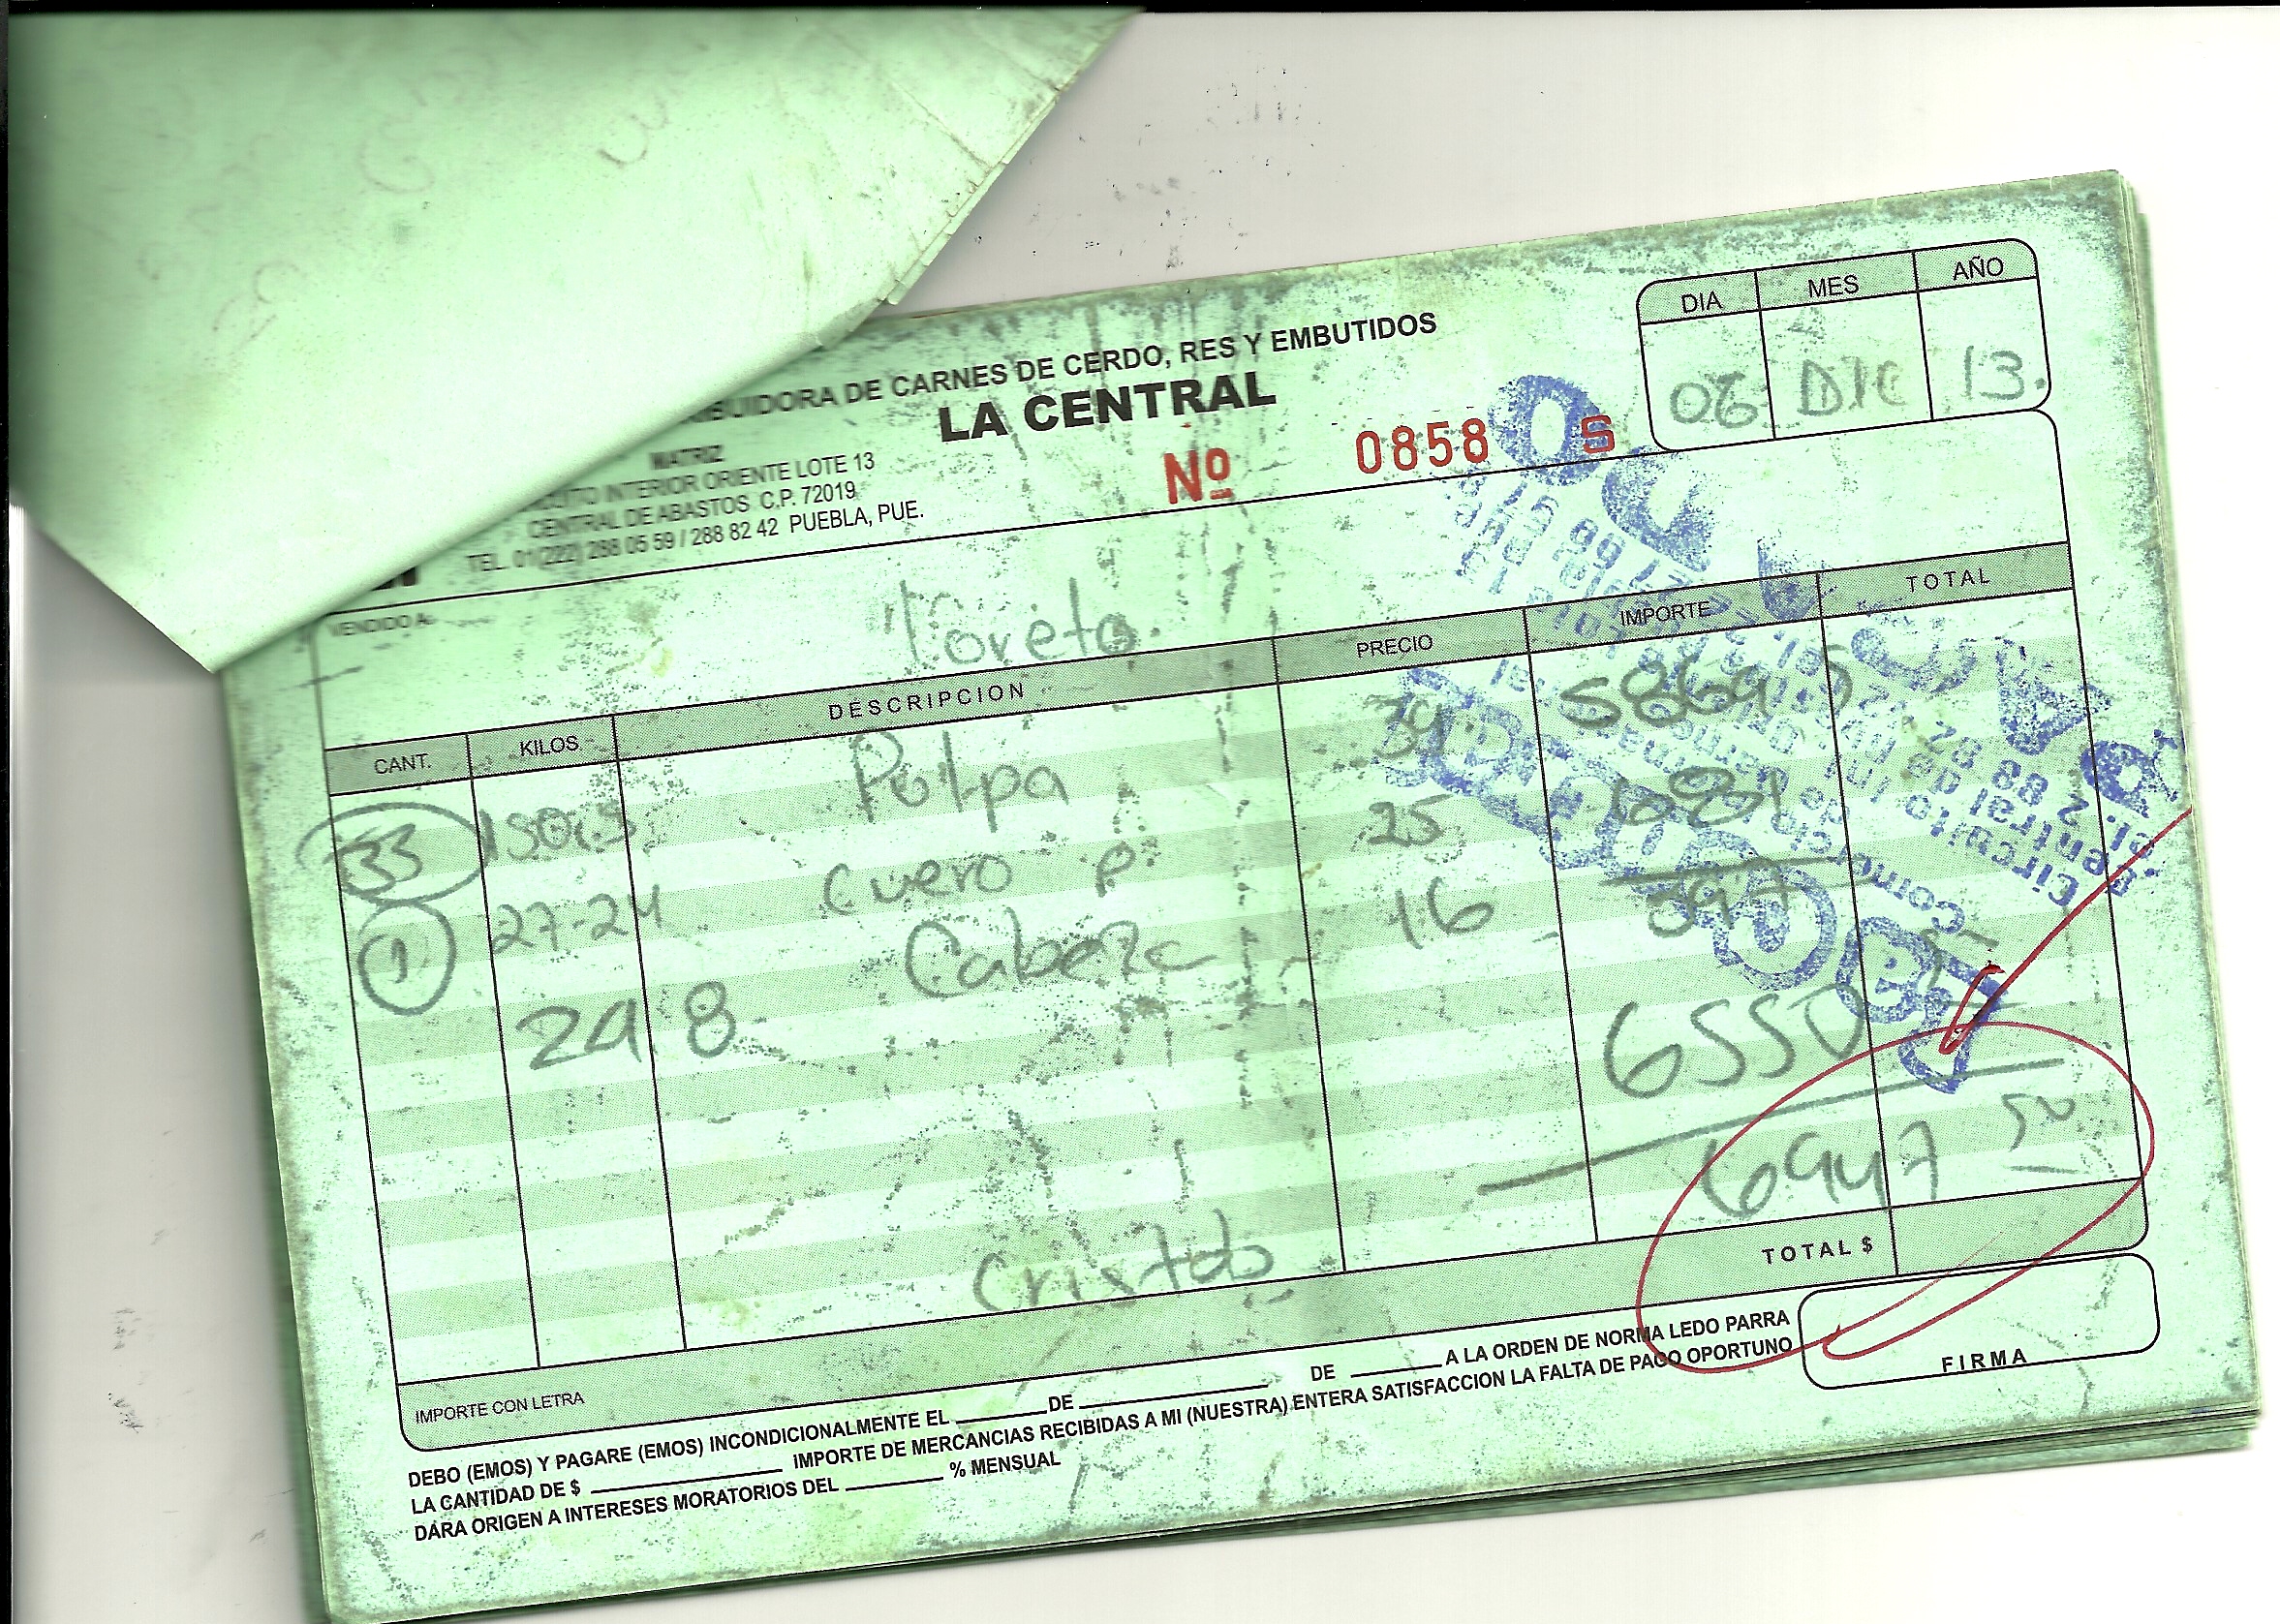 DIA MES AÑO
06 DIC 13.
BUIDORA DE CARNES DE CERDO, RES Y EMBUTIDOS
LA CENTRAL
Nº 0858 S
MATRIZ
CUITO INTERIOR ORIENTE LOTE 13
CENTRAL DE ABASTOS C.P. 72019
TEL. 01(222) 288 05 59 / 288 82 42 PUEBLA, PUE.
VENDIDO A:
Loreto.
CANT. KILOS DESCRIPCION PRECIO IMPORTE TOTAL
33 Pulpa 39
27-24 Cuero P. 25
1 Cabeza 16 397
24 8
6550
6947 50
Cristobo
TOTAL $
IMPORTE CON LETRA
DEBO (EMOS) Y PAGARE (EMOS) INCONDICIONALMENTE EL ______ DE ______ DE ______ A LA ORDEN DE NORMA LEDO PARRA
LA CANTIDAD DE $ ______ IMPORTE DE MERCANCIAS RECIBIDAS A MI (NUESTRA) ENTERA SATISFACCION LA FALTA DE PAGO OPORTUNO
DARA ORIGEN A INTERESES MORATORIOS DEL ______ % MENSUAL
FIRMA